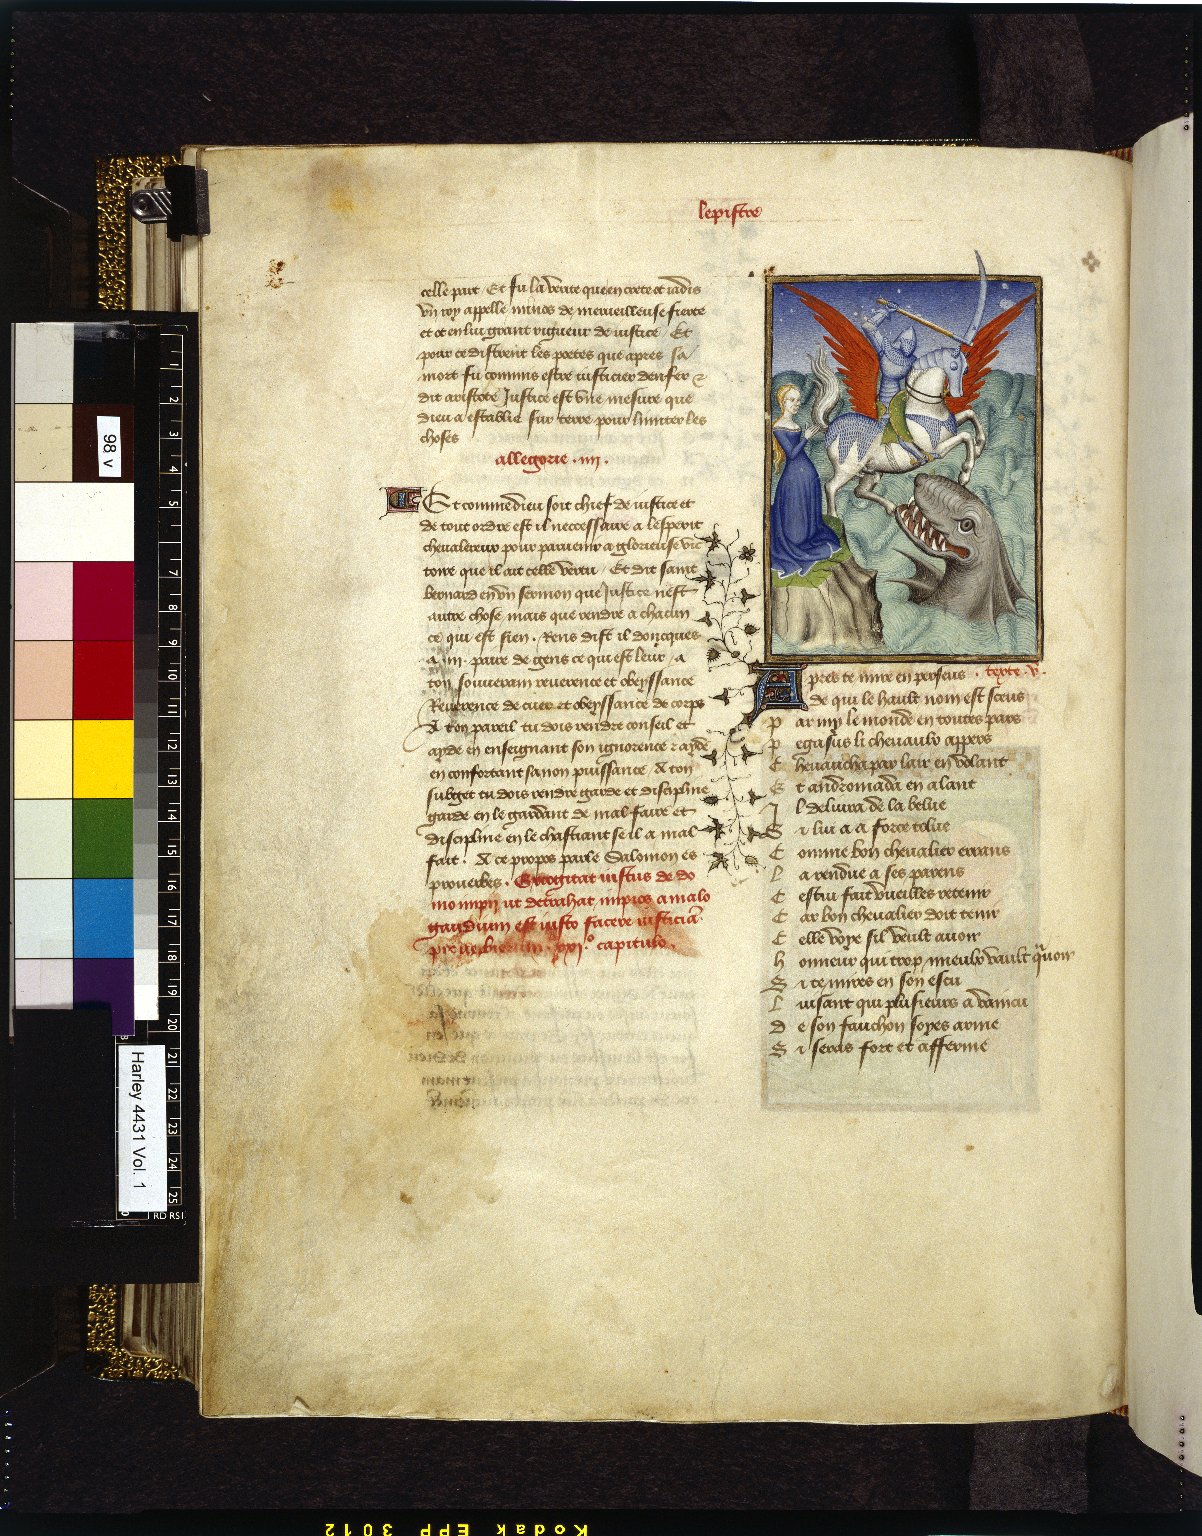 lepistre
celle part. Et fu la verite que en crete ot iadis
vn roy appelle minos de merueilleuse fierte
et ot en lui grant rigueur de iustice. Et
pour ce distrent les poetes que apres sa
mort fu commis estre iusticier denfer ⁊
dit aristote Justice est vne mesure que
dieu a establie sur terre pour limiter les
choses
allegorie .iiij.
Et comme dieu soit chief de iustice et
de tout ordre est il neccessaire a lesperit
cheualereux pour paruenir a glorieuse vic
toire que il ait celle vertu. Et dit saint
bernard en vn sermon que Justice nest
autre chose mais que rendre a chacun
ce qui est sien. Rens dist il doncques
a .iij. paire de gens ce qui est leur. a
ton souuerain reuerence et obeyssance
Reuerence de cuer et obeyssance de corps
A ton pareil tu dois rendre conseil et
ayde en enseignant son ignorence ⁊ ayde
en confortant sa non puissance A ton
subget tu dois rendre garde et discipline
garde en le gardant de mal faire et
discipline en le chastiant se il a mal
fait. A ce propos parle Salomon es
prouerbes. Excogitat iustus de do
mo impij ut detrahat impios a malo
gaudium est iusto facere iusticiam.
prouerbiorum .xxi.o capitulo.
Apres te mire en perseus . texte .v.
de qui le hault nom est sceus
par my le monde en toutes pars
pegasus li cheuaulx appers
Cheuaucha par lair en volant
Et andromada en alant
Il deliura de la belue
Si lui a a force tolue
Comme bon cheualier errans
La rendue a ses parens
Cestui fait vueilles retenir
Car bon cheualier doit tenir
Celle voye sil veult auoir
honneur qui trop mieulx vault quoir
Si te mires en son escu
Luisant qui plusieurs a vaincu
de son fauchon soyes arme
Si seras fort et afferme
98 v
Harley 4431 Vol. 1
1
2
3
4
5
6
7
8
9
10
11
12
13
14
15
16
17
18
19
20
21
22
23
24
25
Kodak EPP 3012